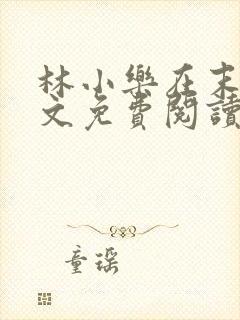 林小樂在末
文免費閱讀
童瑤